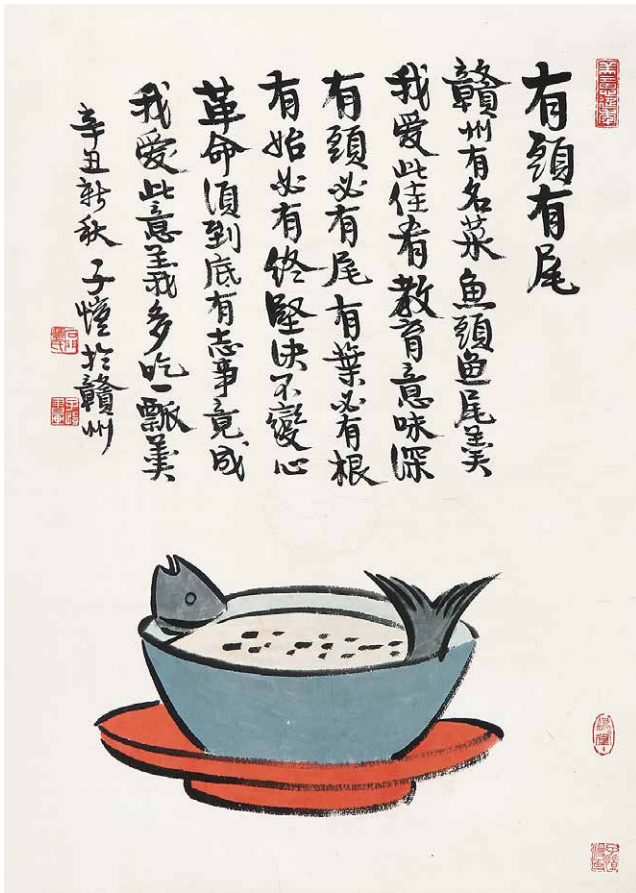 有頭有尾
贛州有名菜魚頭鱼尾羹
我愛此佳肴教育意味深
有頭必有尾有葉必有根
有始必有終堅決不變心
革命須到底有志事竟成
我愛此意義多吃一瓢羹
辛丑新秋子愷於贛州